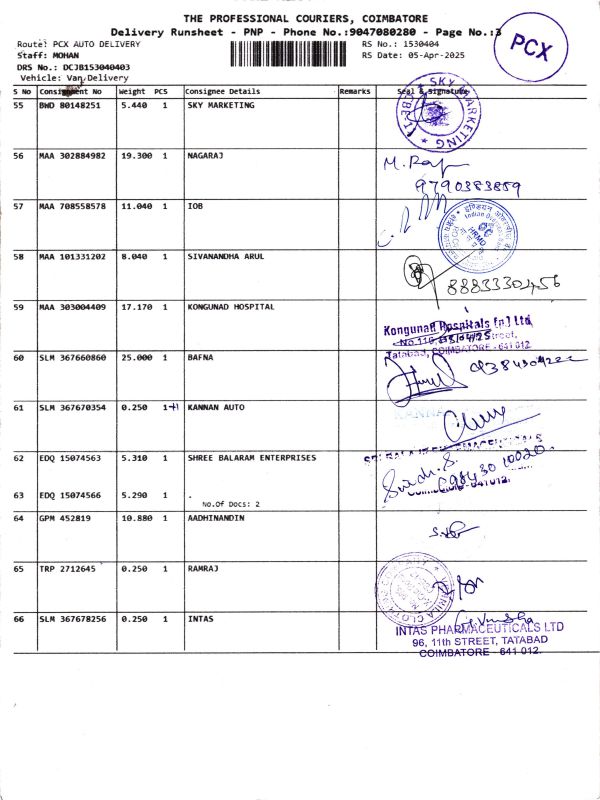 THE PROFESSIONAL COURIERS, COIMBATORE
Delivery Runsheet - PNP - Phone No.:9047080280 - Page No.:3
PCX
Route: PCX AUTO DELIVERY
RS No.: 1530404
Staff: MOHAN
RS Date: 05-Apr-2025
DRS No.: DCJB153040403
Vehicle: Van Delivery
S No Consignment No Weight PCS Consignee Details Remarks Seal & Signature
55 BWD 80148251 5.440 1 SKY MARKETING
SKY MARKETING
56 MAA 302884982 19.300 1 NAGARAJ
M. Raj
9790383859
57 MAA 708558578 11.040 1 IOB
58 MAA 101331202 8.040 1 SIVANANDHA ARUL
8883330456
59 MAA 303004409 17.170 1 KONGUNAD HOSPITAL
Kongunad Hospitals [p] Ltd
Tatabad, COIMBATORE - 641 012
60 SLM 367660860 25.000 1 BAFNA
61 SLM 367670354 0.250 1+1 KANNAN AUTO
KANNA
62 EDQ 15074563 5.310 1 SHREE BALARAM ENTERPRISES
63 EDQ 15074566 5.290 1 .
No.Of Docs: 2
64 GPM 452819 10.880 1 AADHINANDIN
65 TRP 2712645 0.250 1 RAMRAJ
66 SLM 367678256 0.250 1 INTAS
INTAS PHARMACEUTICALS LTD
96, 11th STREET, TATABAD
COIMBATORE - 641 012.